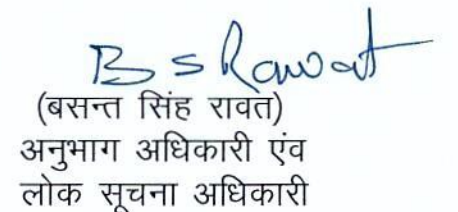 B S Rawat
(बसन्त सिंह रावत)
अनुभाग अधिकारी एंव
लोक सूचना अधिकारी